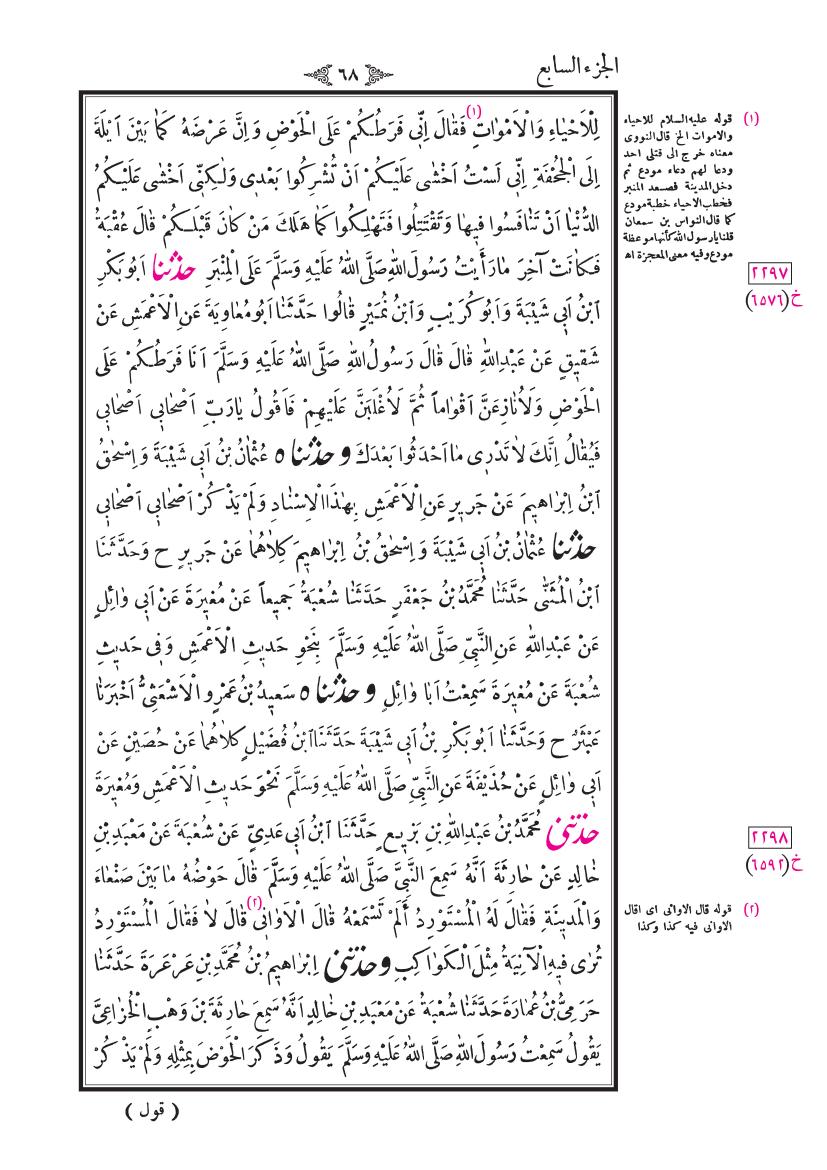 الجزء السابع
٦٨
لِلْاَحْيَاءِ وَالْاَمْوَاتِ(١) فَقَالَ اِنّٖى فَرَطُكُمْ عَلَى الْحَوْضِ وَاِنَّ عَرْضَهُ كَمَا بَيْنَ اَيْلَةَ
اِلَى الْجُحْفَةِ اِنّٖى لَسْتُ اَخْشٰى عَلَيْكُمْ اَنْ تُشْرِكُوا بَعْدٖى وَلٰكِنّٖى اَخْشٰى عَلَيْكُمُ
الدُّنْيَا اَنْ تَنَافَسُوا فٖيهَا وَتَقْتَتِلُوا فَتَهْلِكُوا كَمَا هَلَكَ مَنْ كَانَ قَبْلَكُمْ قَالَ عُقْبَةُ
فَكَانَتْ آخِرَ مَا رَأَيْتُ رَسُولَ اللّٰهِ صَلَّى اللّٰهُ عَلَيْهِ وَسَلَّمَ عَلَى الْمِنْبَرِ حدثنا اَبُو بَكْرِ
ابْنُ اَبٖى شَيْبَةَ وَاَبُو كُرَيْبٍ وَابْنُ نُمَيْرٍ قَالُوا حَدَّثَنَا اَبُو مُعَاوِيَةَ عَنِ الْاَعْمَشِ عَنْ
شَقٖيقٍ عَنْ عَبْدِ اللّٰهِ قَالَ قَالَ رَسُولُ اللّٰهِ صَلَّى اللّٰهُ عَلَيْهِ وَسَلَّمَ اَنَا فَرَطُكُمْ عَلَى
الْحَوْضِ وَلَاُنَازِعَنَّ اَقْوَاماً ثُمَّ لَاُغْلَبَنَّ عَلَيْهِمْ فَاَقُولُ يَا رَبِّ اَصْحَابٖى اَصْحَابٖى
فَيُقَالُ اِنَّكَ لَا تَدْرٖى مَا اَحْدَثُوا بَعْدَكَ وحدثناه عُثْمَانُ بْنُ اَبٖى شَيْبَةَ وَاِسْحٰقُ
ابْنُ اِبْرَاهٖيمَ عَنْ جَرٖيرٍ عَنِ الْاَعْمَشِ بِهٰذَا الْاِسْنَادِ وَلَمْ يَذْكُرْ اَصْحَابٖى اَصْحَابٖى
حدثنا عُثْمَانُ بْنُ اَبٖى شَيْبَةَ وَاِسْحٰقُ بْنُ اِبْرَاهٖيمَ كِلَاهُمَا عَنْ جَرٖيرٍ ح وَحَدَّثَنَا
ابْنُ الْمُثَنّٰى حَدَّثَنَا مُحَمَّدُ بْنُ جَعْفَرٍ حَدَّثَنَا شُعْبَةُ جَمٖيعاً عَنْ مُغٖيرَةَ عَنْ اَبٖى وَائِلٍ
عَنْ عَبْدِ اللّٰهِ عَنِ النَّبِيِّ صَلَّى اللّٰهُ عَلَيْهِ وَسَلَّمَ بِنَحْوِ حَدٖيثِ الْاَعْمَشِ وَفٖى حَدٖيثِ
شُعْبَةَ عَنْ مُغٖيرَةَ سَمِعْتُ اَبَا وَائِلٍ وحدثناه سَعٖيدُ بْنُ عَمْرٍو الْاَشْعَثِيُّ اَخْبَرَنَا
عَبْثَرٌ ح وَحَدَّثَنَا اَبُو بَكْرِ بْنُ اَبٖى شَيْبَةَ حَدَّثَنَا ابْنُ فُضَيْلٍ كِلَاهُمَا عَنْ حُصَيْنٍ عَنْ
اَبٖى وَائِلٍ عَنْ حُذَيْفَةَ عَنِ النَّبِيِّ صَلَّى اللّٰهُ عَلَيْهِ وَسَلَّمَ نَحْوَ حَدٖيثِ الْاَعْمَشِ وَمُغٖيرَةَ
حدثنى مُحَمَّدُ بْنُ عَبْدِ اللّٰهِ بْنِ بَزٖيعٍ حَدَّثَنَا ابْنُ اَبٖى عَدِيٍّ عَنْ شُعْبَةَ عَنْ مَعْبَدِ بْنِ
خَالِدٍ عَنْ حَارِثَةَ اَنَّهُ سَمِعَ النَّبِيَّ صَلَّى اللّٰهُ عَلَيْهِ وَسَلَّمَ قَالَ حَوْضُهُ مَا بَيْنَ صَنْعَاءَ
وَالْمَدٖينَةِ فَقَالَ لَهُ الْمُسْتَوْرِدُ اَلَمْ تَسْمَعْهُ قَالَ الْاَوَانٖى(٢) قَالَ لَا فَقَالَ الْمُسْتَوْرِدُ
تُرٰى فٖيهِ الْآنِيَةُ مِثْلَ الْكَوَاكِبِ وحدثنى اِبْرَاهٖيمُ بْنُ مُحَمَّدِ بْنِ عَرْعَرَةَ حَدَّثَنَا
حَرَمِيُّ بْنُ عُمَارَةَ حَدَّثَنَا شُعْبَةُ عَنْ مَعْبَدِ بْنِ خَالِدٍ اَنَّهُ سَمِعَ حَارِثَةَ بْنَ وَهْبٍ الْخُزَاعِيَّ
يَقُولُ سَمِعْتُ رَسُولَ اللّٰهِ صَلَّى اللّٰهُ عَلَيْهِ وَسَلَّمَ يَقُولُ وَذَكَرَ الْحَوْضَ بِمِثْلِهِ وَلَمْ يَذْكُرْ
( قول )
(١) قوله عليه السلام للاحياء
والاموات الخ قال النووى
معناه خرج الى قتلى احد
ودعا لهم دعاء مودع ثم
دخل المدينة فصعد المنبر
فخطب الاحياء خطبة مودع
كما قال النواس بن سمعان
قلنا يا رسول الله كأنها موعظة
مودع وفيه معنى المعجزة اه
٢٢٩٧
خ(٦٥٧٦)
٢٢٩٨
خ(٦٥٩٢)
(٢) قوله قال الاوانى اى اقال
الاوانى فيه كذا وكذا